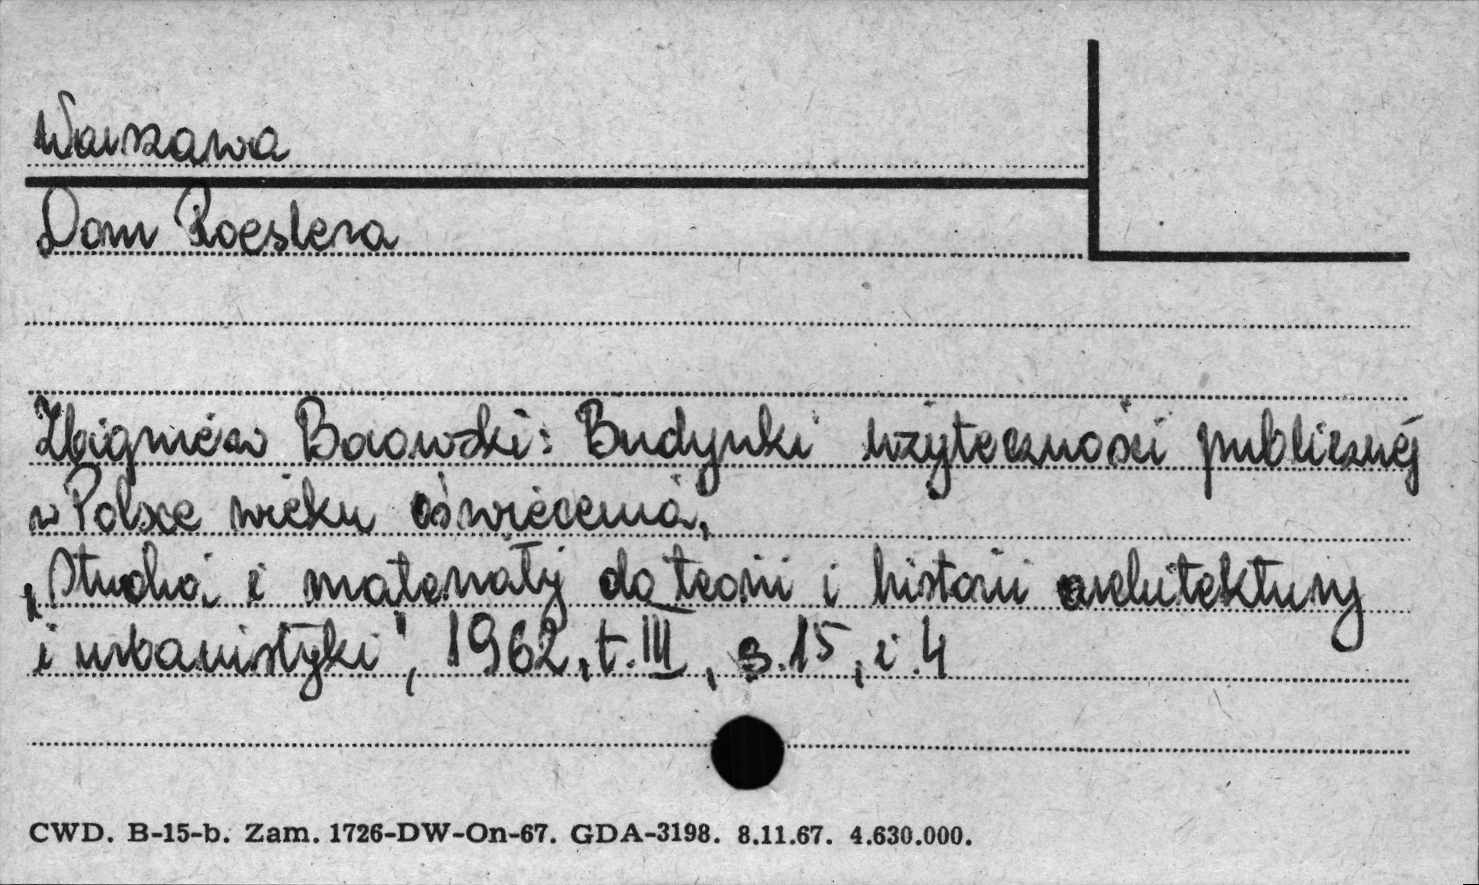 Warszawa
Dom Roeslera
Zbigniew Baowski: Budynki użyteczności publicznej
w Polsce wieku oświecenia,
"Studia i materiały do teorii i historii architektury
i urbanistyki", 1962, t. III, s. 15, i. 4
CWD. B-15-b. Zam. 1726-DW-On-67. GDA-3198. 8.11.67. 4.630.000.